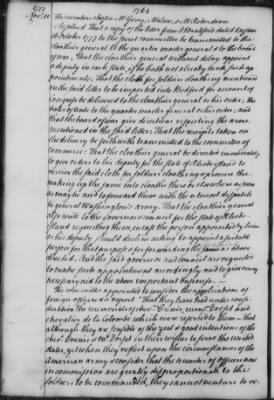 1777
Nov. 20
The members chosen Mr Gerry, Mr Law, & Mr
Resolved That a copy of the letter from J Bradford dated Boston
October 1777 to the joint committee be transmitted to the
cloathier general & the quarter master general & to the board
of war; That the cloathier general without delay appoint
a deputy in each state, if he hath not already made such ap-
pointments; That the cloth for soldiers cloathing mentioned
in the said letter to be imported into Bedford for account of
congress be delivered to the cloathier general or his order, the
to the quarter master general or his order, and
that the board of war give directions respecting the arms
mentioned in the said letter; That the receipts taken on
the delivery be forthwith transmitted to the committee of
commerce; That the cloathier general be directed immediately
to give orders to his deputy for the state of Massachusetts to
receive the said cloth for soldiers cloathing & procure the
making up the same into cloaths there or elsewhere as soon
as may be and to forward them with the utmost dispatch to
general Washington's army. That the cloathier general
also write to the governor & council for the state of
requesting them, in case the person appointed by him
as his deputy should decline acting to appoint a suitable
person for that purpose & for forwarding the same as above
directed. And the said governor and council are requested
to make such appointment accordingly and to give every
necessary aid to the above important business.
The committee appointed to consider the applications of
foreign officers do report "That they have had under consi-
deration the memorials of chevr
chevalier de la Colombe which were referred to them that
although they are sensible of the zeal & good intentions of the
chevr & Mr in their wishes to serve these united
states, yet when they reflect upon the circumstances of the
American army & consider that the number of officers now
in commission are greatly disproportionate to the
soldiers to be commanded, they cannot venture to re-